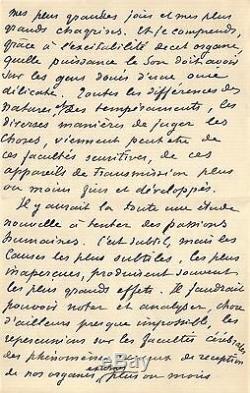 mes plus grandes joies et mes plus
grands chagrins. Et je comprends,
grâce à l'excitabilité de cet organe,
quelle puissance le Son doit avoir
sur les gens doués d'une âme
délicate. Toutes les différences des
natures, des tempéraments, les
diverses manières de juger les
choses, viennent peut-être de
ces facultés sensitives, de ces
appareils de transmission plus
ou moins fins et développés.
Il y aurait là toute une étude
nouvelle à tenter des passions
humaines. C'est subtil, mais les
causes les plus subtiles, les plus
inaperçues, produisent souvent
les plus grands effets. Il faudrait
pouvoir noter et analyser, chose
d'ailleurs presque impossible, les
répercussions sur les facultés cérébrales
des phénomènes de réception
de nos organes plus ou moins
ebay